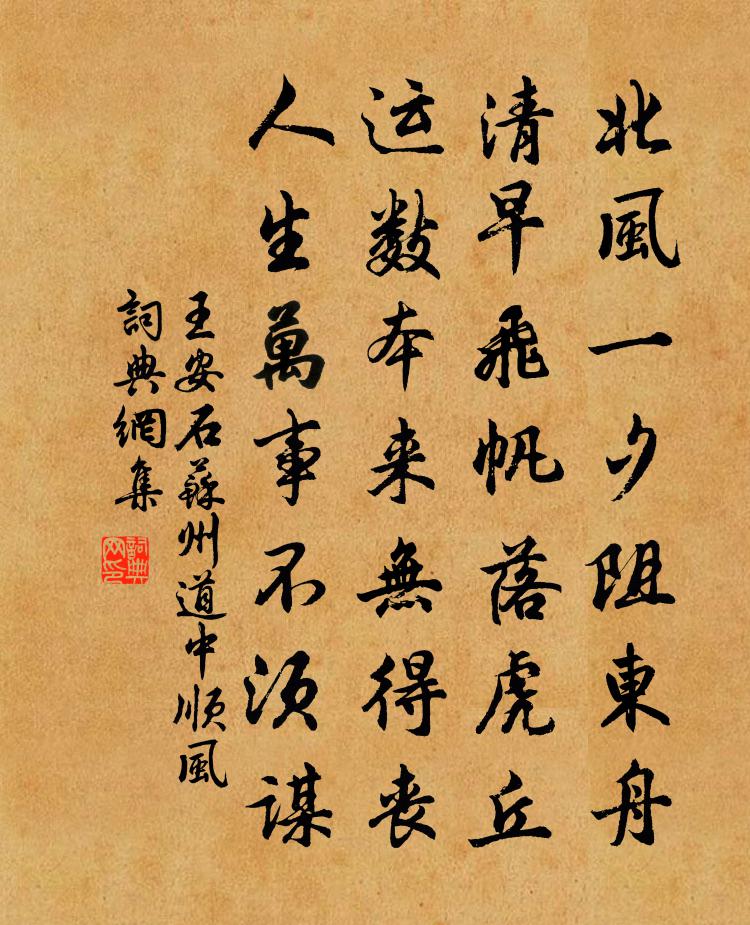 北風一夕阻東舟
清早飛帆落虎丘
运数本来無得喪
人生萬事不须谋
王安石蘇州道中順風
詞典網集
詞典
网印